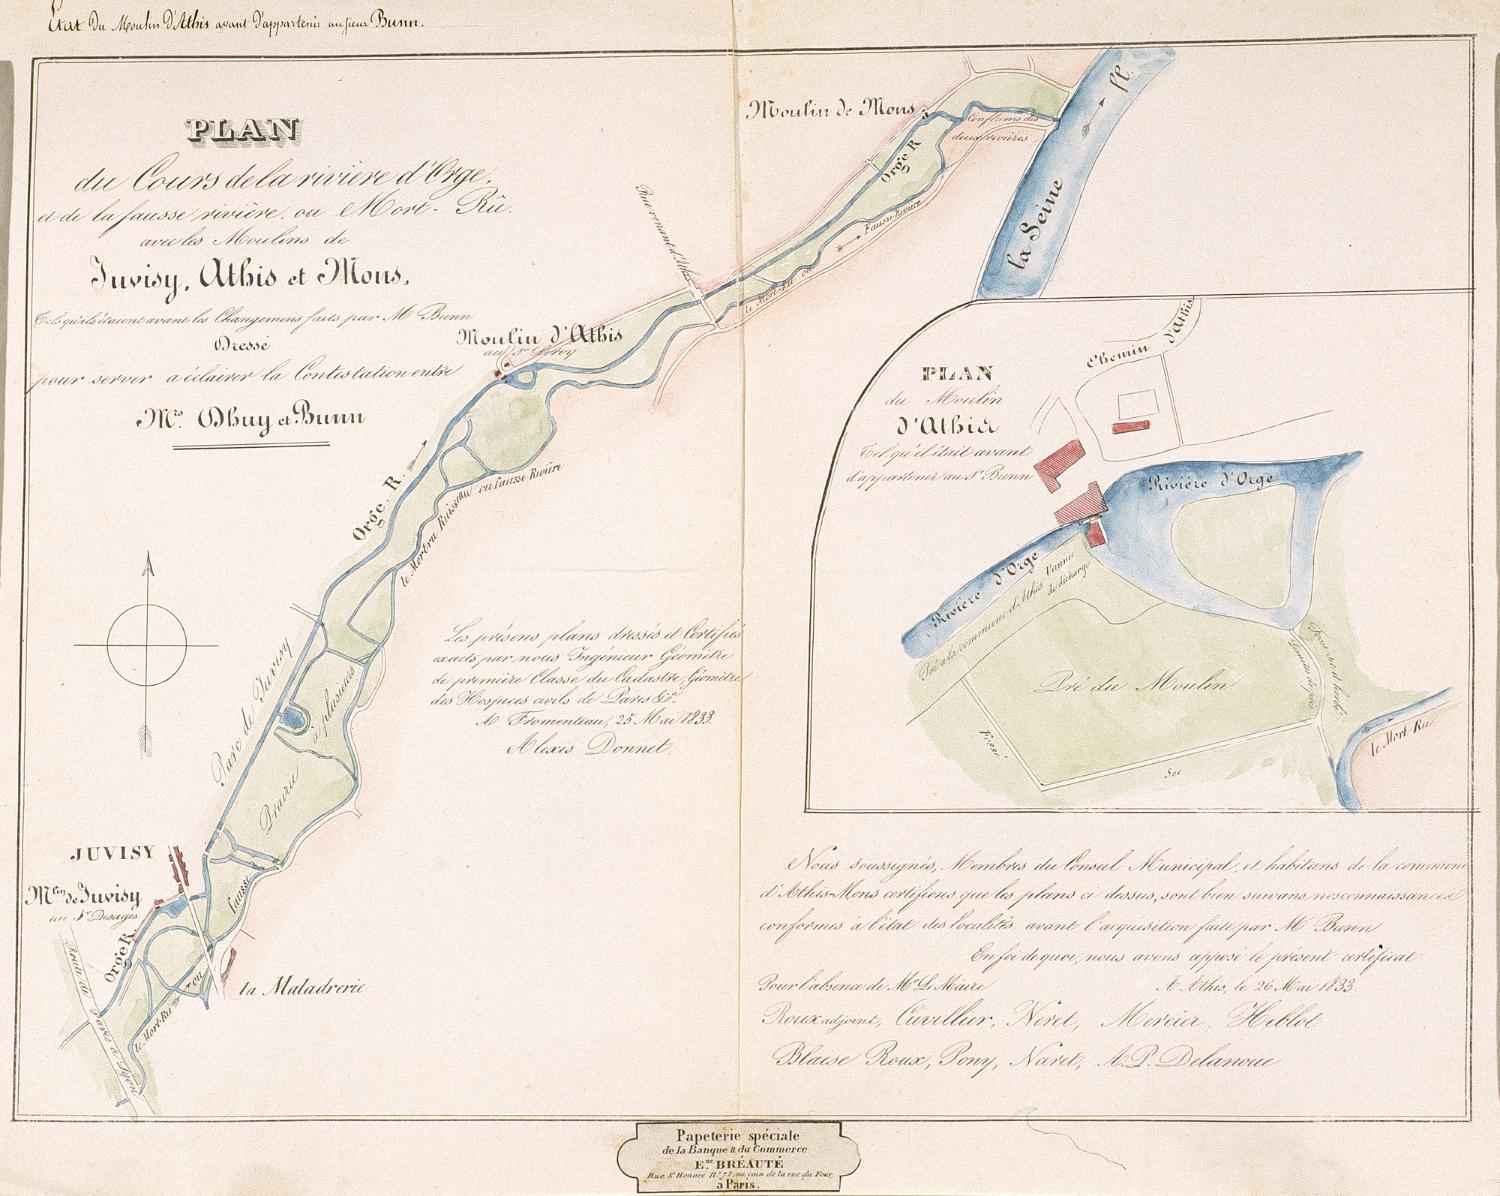 Etat du Moulin D'Athis avant d'appartenir au sieur Bunn.
PLAN
du Cours de la rivière d'Orge,
et de la fausse rivière, ou Mort-Rû.
avec les Moulins de
Juvisy, Athis et Mons,
Tels qu'ils étaient avant les Changemens faits par Mr Bunn
Dressé
pour servir a éclairer la Contestation entre
Mrs. Dhuy et Bunn
Moulin de Mons
Confluens des
deux rivières
Orge R
la Seine
fl.
Fausse Rivière
le Mort-Ru ou
Rue venant d'Athis
Moulin d'Athis
au Sr Leroy
Orge. R.
le Mort-ru Ruisseau ou fausse Rivière
Parc de Juvisy
Prairie
à plusieurs
JUVISY
Min de Juvisy
au Sr Desagés
Orge R.
Fausse
la Maladrerie
le Mort-Ru ou
Route de Paris à Lyon
Les présens plans dressés et Certifiés
exacts par nous Ingénieur Géomètre
de première Classe du Cadastre, Géomètre
des Hospices civils de Paris &a.
A Fromenteau, 25 Mai 1833.
Alexis Donnet.
PLAN
du Moulin
d'Athis
Tel qu'il était avant
d'appartenir au Sr Bunn
Chemin d'Athis
Rivière d'Orge
Rivière d'Orge
Vanne
de décharge
Pré à la commune d'Athis
Pré du Moulin
Fossé
Sec
le Mort-Ru
Nous soussignés, Membres du Conseil Municipal, et habitans de la commune
d'Athis-Mons certifions que les plans ci dessus, sont bien suivans nos connaissances
conformes à l'état des localités avant l'acquisition faite par Mr Bunn
En foi de quoi, nous avons apposé le présent certificat
Pour l'absence de Mr Le Maire
A Athis, le 26 Mai 1833.
Roux adjoint, Cuvillier, Néret, Mercier, Hiblot
Blaise Roux, Pony, Naret, A.P. Delanoue
Papeterie spéciale
de la Banque & du Commerce
Ene BRÉAUTÉ
Rue St Honoré No 72, au coin de la rue du Four
à Paris.